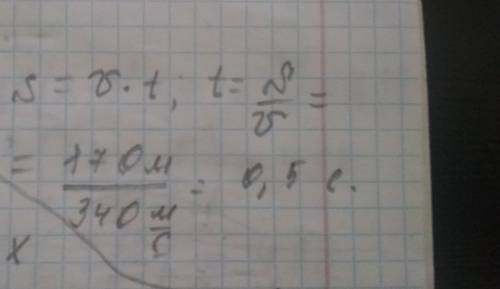 s = v · t; t = s/v =
= 170 м / 340 м/с = 0,5 с.
x